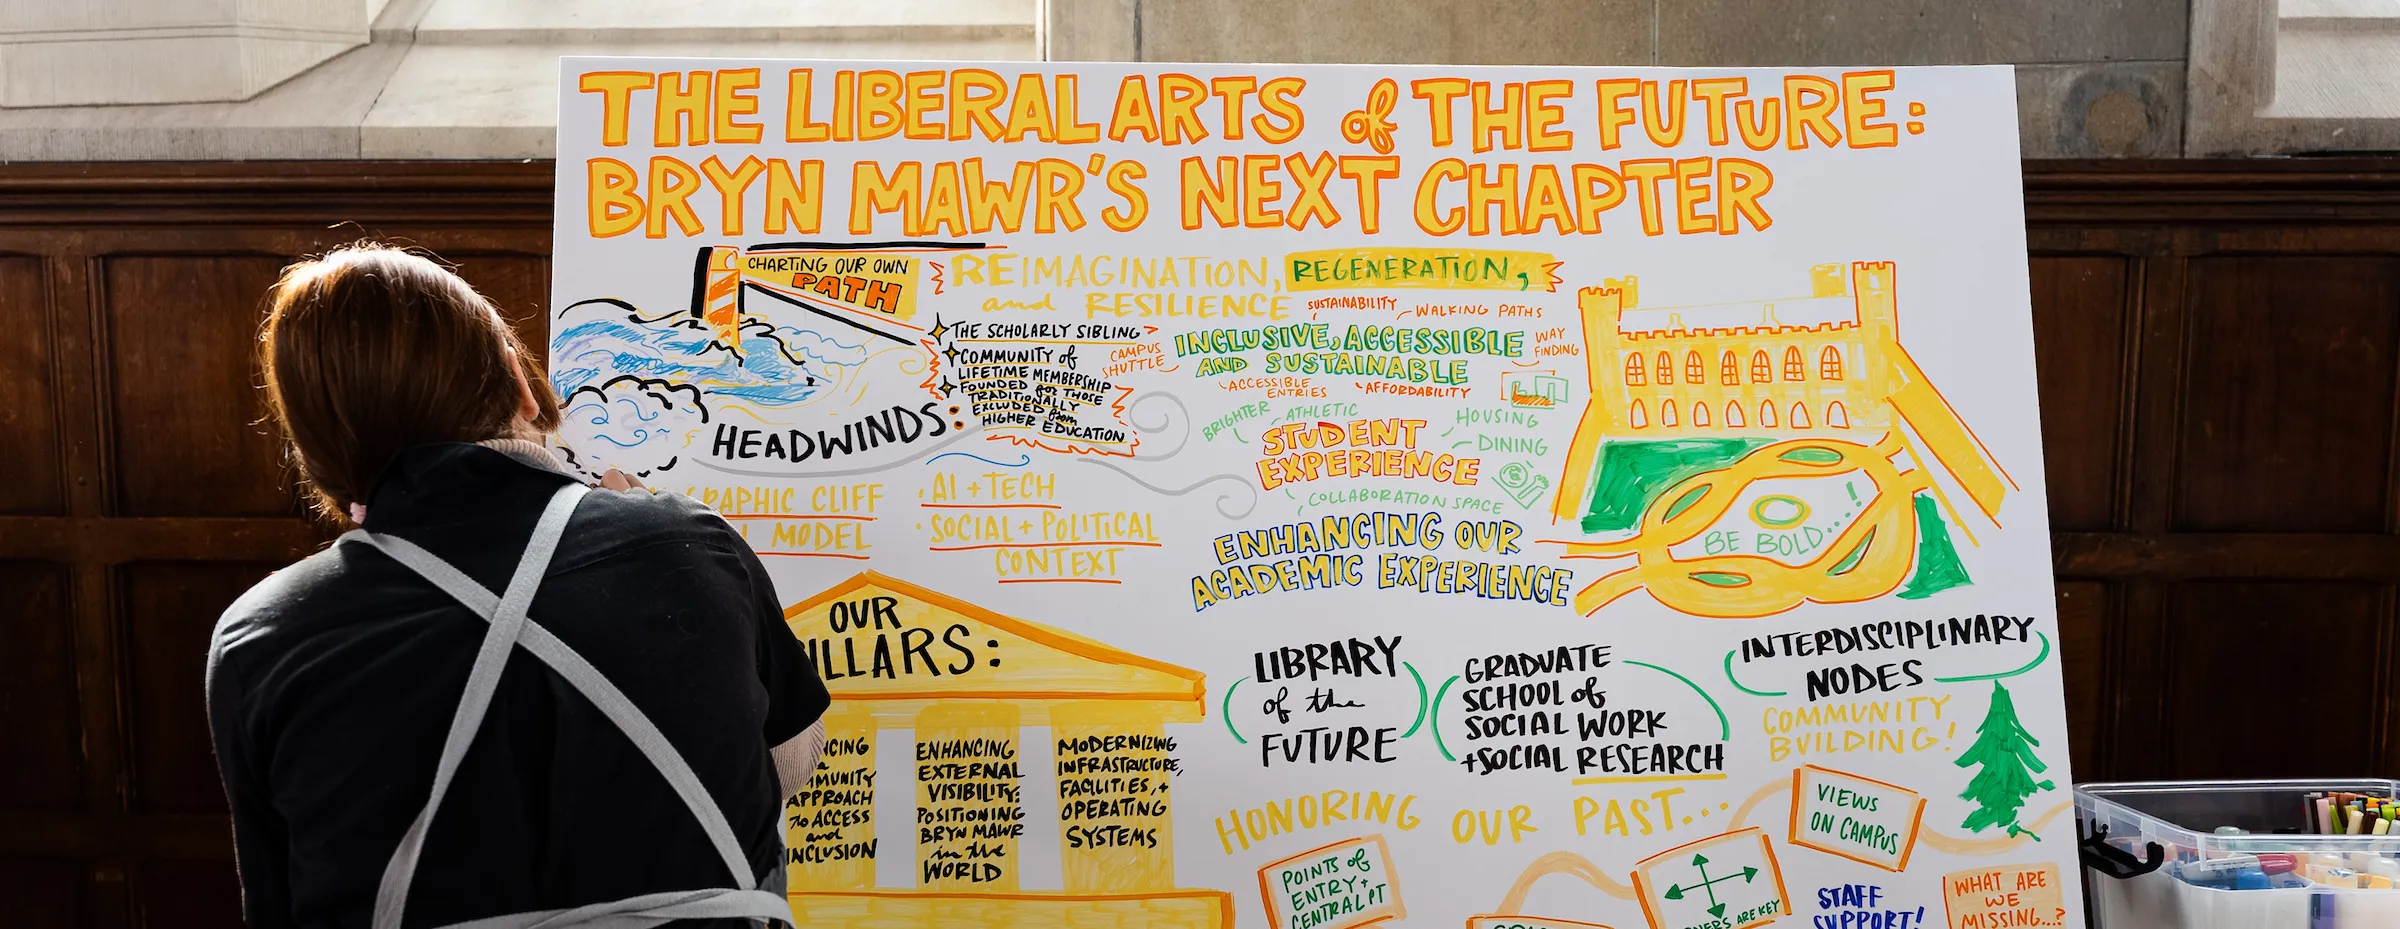 THE LIBERAL ARTS of THE FUTURE:
BRYN MAWR'S NEXT CHAPTER
CHARTING OUR OWN
PATH
REIMAGINATION, REGENERATION,
and RESILIENCE
THE SCHOLARLY SIBLING
COMMUNITY of
LIFETIME MEMBERSHIP
FOUNDED for THOSE
TRADITIONALLY
EXCLUDED from
HIGHER EDUCATION
HEADWINDS:
CLIFF
MODEL
• AI + TECH
• SOCIAL + POLITICAL
CONTEXT
SUSTAINABILITY
WALKING PATHS
CAMPUS
SHUTTLE
INCLUSIVE, ACCESSIBLE
AND SUSTAINABLE
WAY
FINDING
ACCESSIBLE
ENTRIES
AFFORDABILITY
BRIGHTER
ATHLETIC
HOUSING
STUDENT
EXPERIENCE
DINING
COLLABORATION SPACE
ENHANCING OUR
ACADEMIC EXPERIENCE
BE BOLD....!
OUR
PILLARS:
APPROACH
to ACCESS
and
INCLUSION
ENHANCING
EXTERNAL
VISIBILITY:
POSITIONING
BRYN MAWR
in the
WORLD
MODERNIZING
INFRASTRUCTURE,
FACILITIES, +
OPERATING
SYSTEMS
LIBRARY
of the
FUTURE
GRADUATE
SCHOOL of
SOCIAL WORK
+SOCIAL RESEARCH
INTERDISCIPLINARY
NODES
COMMUNITY
BUILDING!
HONORING OUR PAST...
POINTS of
ENTRY +
CENTRAL PT
ARE KEY
VIEWS
ON CAMPUS
STAFF
SUPPORT!
WHAT ARE
WE
MISSING...?